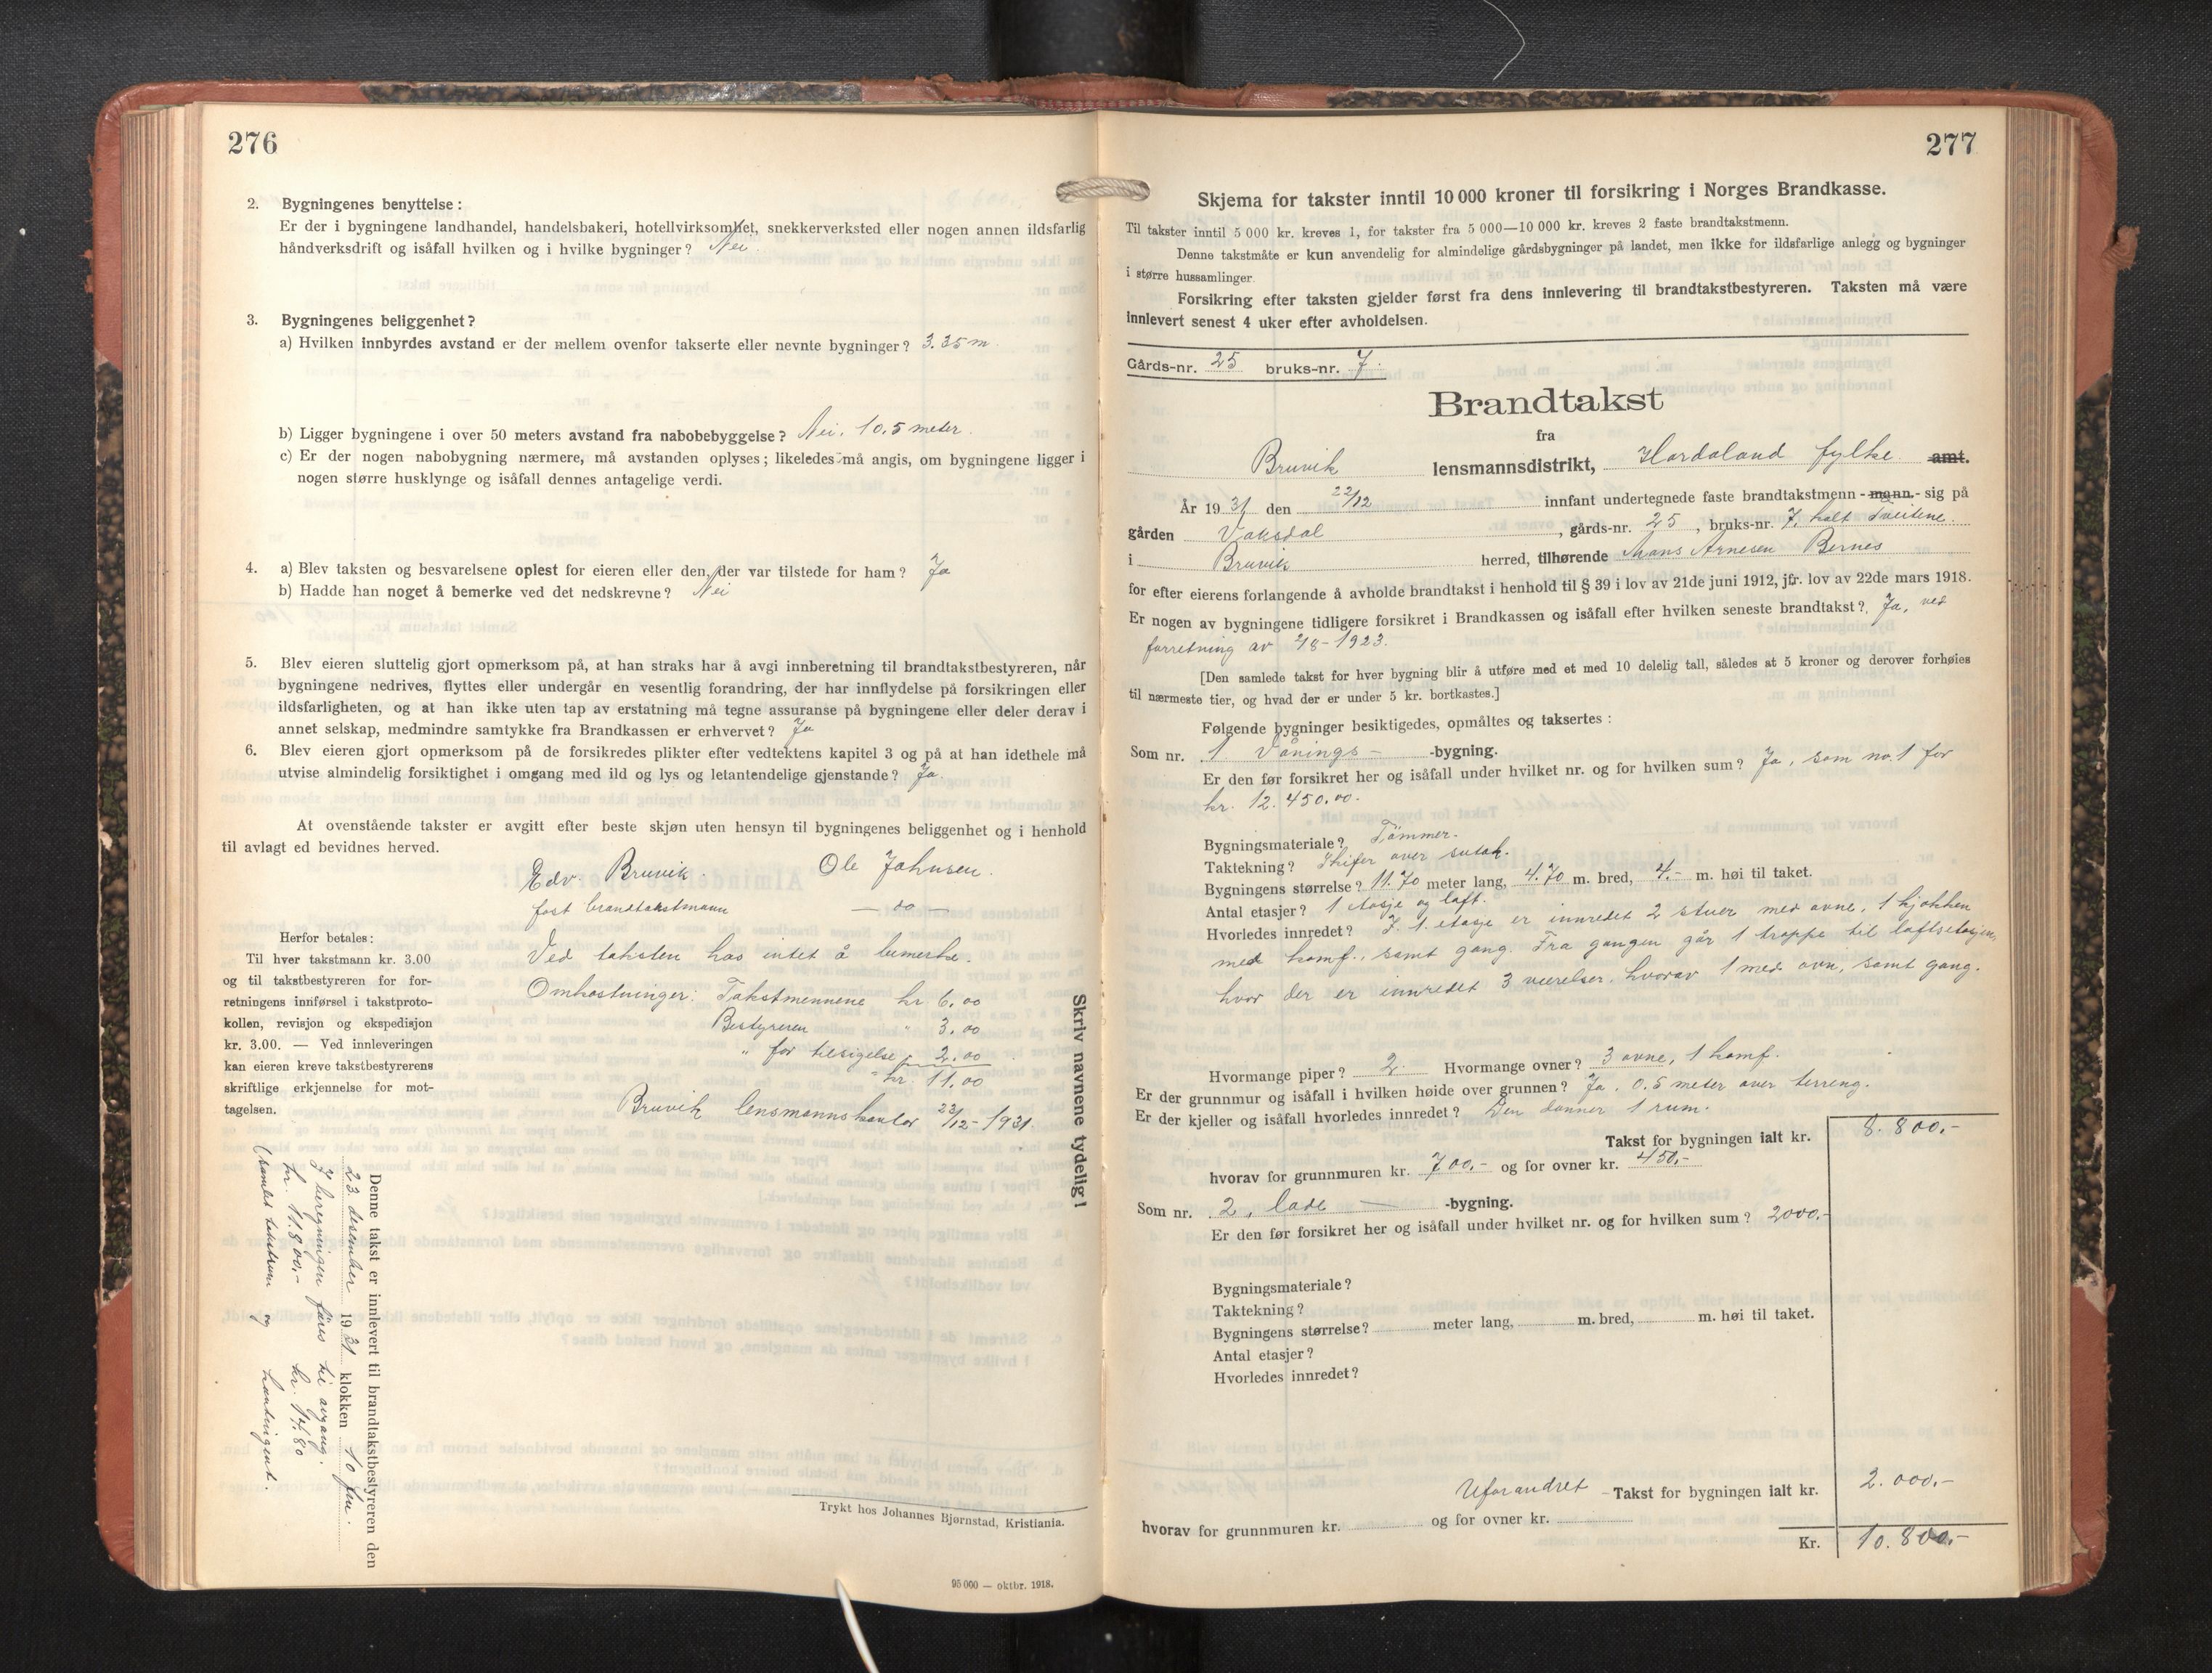 276
2. Bygningenes benyttelse :
Er der i bygningene landhandel, handelsbakeri, hotellvirksomhet, snekkerverksted eller nogen annen ildsfarlig
håndverksdrift og isåfall hvilken og i hvilke bygninger? Nei
3. Bygningenes beliggenhet?
a) Hvilken innbyrdes avstand er der mellem ovenfor takserte eller nevnte bygninger? 3.35 m.
b) Ligger bygningene i over 50 meters avstand fra nabobebyggelse? Nei. 10.5 meter.
c) Er der nogen nabobygning nærmere, må avstanden oplyses; likeledes må angis, om bygningene ligger i
nogen større husklynge og isåfall dennes antagelige verdi.
4. a) Blev taksten og besvarelsene oplest for eieren eller den, der var tilstede for ham? Ja
b) Hadde han noget å bemerke ved det nedskrevne? Nei
5. Blev eieren sluttelig gjort opmerksom på, at han straks har å avgi innberetning til brandtakstbestyreren, når
bygningene nedrives, flyttes eller undergår en vesentlig forandring, der har innflydelse på forsikringen eller
ildsfarligheten, og at han ikke uten tap av erstatning må tegne assuranse på bygningene eller deler derav i
annet selskap, medmindre samtykke fra Brandkassen er erhvervet? Ja
6. Blev eieren gjort opmerksom på de forsikredes plikter efter vedtektens kapitel 3 og på at han idethele må
utvise almindelig forsiktighet i omgang med ild og lys og letantendelige gjenstande? Ja.
At ovenstående takster er avgitt efter beste skjøn uten hensyn til bygningenes beliggenhet og i henhold
til avlagt ed bevidnes herved.
Edv. Bruvik. Ole Johnsen.
fast brandtakstmann — do —
Herfor betales:
Til hver takstmann kr. 3.00
og til takstbestyreren for for-
retningens innførsel i takstproto-
kollen, revisjon og ekspedisjon
kr. 3.00. — Ved innleveringen
kan eieren kreve takstbestyrerens
skriftlige erkjennelse for mot-
tagelsen.
Ved taksten has intet å bemerke.
Omkostninger: Takstmennene kr 6.00
Bestyreren " 3.00
" for tilsigelse " 2.00
kr. 11.00
Bruvik lensmannskontor 23/12-1931.
Skriv navnene tydelig!
Denne takst er innlevert til brandtakstbestyreren den
23 desember 1931 klokken 10 fm.
I beregningen føres til avgang.
kr. 11.800,- kr. 14.80
(samlet takstsum og kontingent.
Trykt hos Johannes Bjørnstad, Kristiania.
95 000 — oktbr. 1918.
277
Skjema for takster inntil 10 000 kroner til forsikring i Norges Brandkasse.
Til takster inntil 5 000 kr. kreves 1, for takster fra 5 000—10 000 kr. kreves 2 faste brandtakstmenn.
Denne takstmåte er kun anvendelig for almindelige gårdsbygninger på landet, men ikke for ildsfarlige anlegg og bygninger
i større hussamlinger.
Forsikring efter taksten gjelder først fra dens innlevering til brandtakstbestyreren. Taksten må være
innlevert senest 4 uker efter avholdelsen.
Gårds-nr. 25 bruks-nr. 7.
Brandtakst
fra
Bruvik lensmannsdistrikt, Hordaland fylke amt.
År 1931 den 22/12 innfant undertegnede faste brandtakstmenn - mann - sig på
gården Vaksdal, gårds-nr. 25, bruks-nr. 7, kalt Tveitene.
i Bruvik herred, tilhørende Mons Arnesen Bernes
for efter eierens forlangende å avholde brandtakst i henhold til § 39 i lov av 21de juni 1912, jfr. lov av 22de mars 1918.
Er nogen av bygningene tidligere forsikret i Brandkassen og isåfall efter hvilken seneste brandtakst? Ja, ved
forretning av 4/8-1923.
[Den samlede takst for hver bygning blir å utføre med et med 10 delelig tall, således at 5 kroner og derover forhøies
til nærmeste tier, og hvad der er under 5 kr. bortkastes.]
Følgende bygninger besiktigedes, opmåltes og taksertes :
Som nr. 1 Vånings- -bygning.
Er den før forsikret her og isåfall under hvilket nr. og for hvilken sum? Ja, som no. 1 for
kr. 12.450.00.
Bygningsmateriale? Tømmer.
Taktekning? Skifer over sutak.
Bygningens størrelse? 11.70 meter lang, 4.70 m. bred, 4.- m. høi til taket.
Antal etasjer? 1 etasje og loft.
Hvorledes innredet? I 1. etasje er innredet 2 stuer med ovne, 1 kjøkken
med komf., samt gang. Fra gangen går 1 trappe til loftsetasjen,
hvor der er innredet 3 værelser, hvorav 1 med ovn, samt gang.
Hvormange piper? 2. Hvormange ovner? 3 ovne, 1 komf.
Er der grunnmur og isåfall i hvilken høide over grunnen? Ja. 0.5 meter over terreng.
Er der kjeller og isåfall hvorledes innredet? Den danner 1 rum.
Takst for bygningen ialt kr. 8.800,-
hvorav for grunnmuren kr. 700,- og for ovner kr. 450,-
Som nr. 2, lade — -bygning.
Er den før forsikret her og isåfall under hvilket nr. og for hvilken sum? 2000,-
Bygningsmateriale?
Taktekning?
Bygningens størrelse? meter lang, m. bred, m. høi til taket.
Antal etasjer?
Hvorledes innredet?
Uforandret - Takst for bygningen ialt kr. 2.000,-
hvorav for grunnmuren kr. og for ovner kr.
Kr. 10.800,-